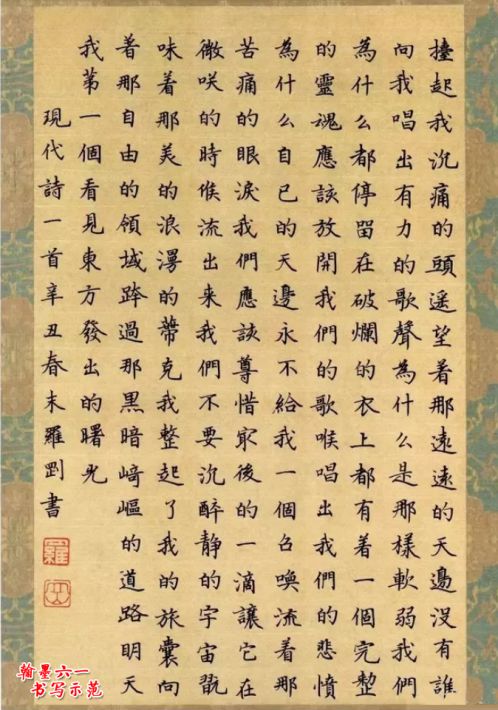 擡起我沉痛的頭遥望着那遠遠的天邊没有誰
向我唱出有力的歌聲為什么是那樣軟弱我們
為什么都停留在破爛的衣上都有着一個完整
的靈魂應該放開我們的歌喉唱出我們的悲憤
為什么自已的天邊永不給我一個召唤流着那
苦痛的眼淚我們應該尊惜最後的一滴讓它在
微咲的時候流出来我們不要沉醉静的宇宙翫
味着那美的浪漫的蒂克我整起了我的旅囊向
着那自由的領域跨過那黑暗崎嶇的道路明天
我第一個看見東方發出的曙光
現代詩一首辛丑春末羅罡書
翰墨六一
书写示范